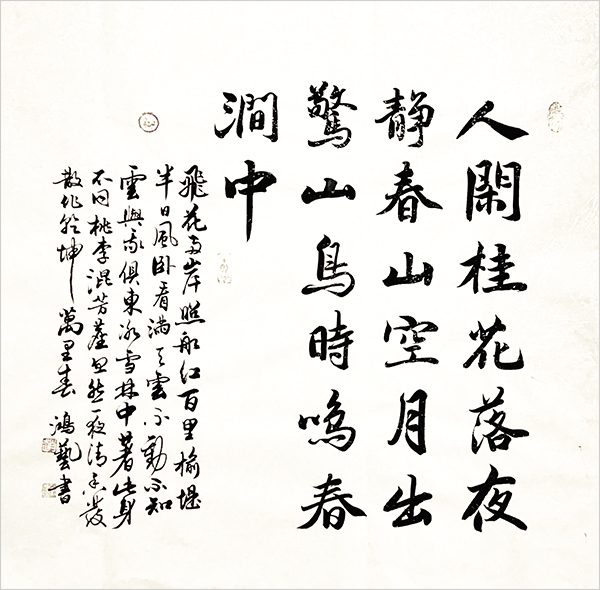 人閑桂花落夜
静春山空月出
驚山鳥時鳴春
澗中
飛花兩岸照船紅百里榆堤
半日風卧看滿天雲不動不知
雲與我俱東冰雪林中著此身
不同桃李混芳塵忽然一夜清香發
散作乾坤萬里春 鴻藝書